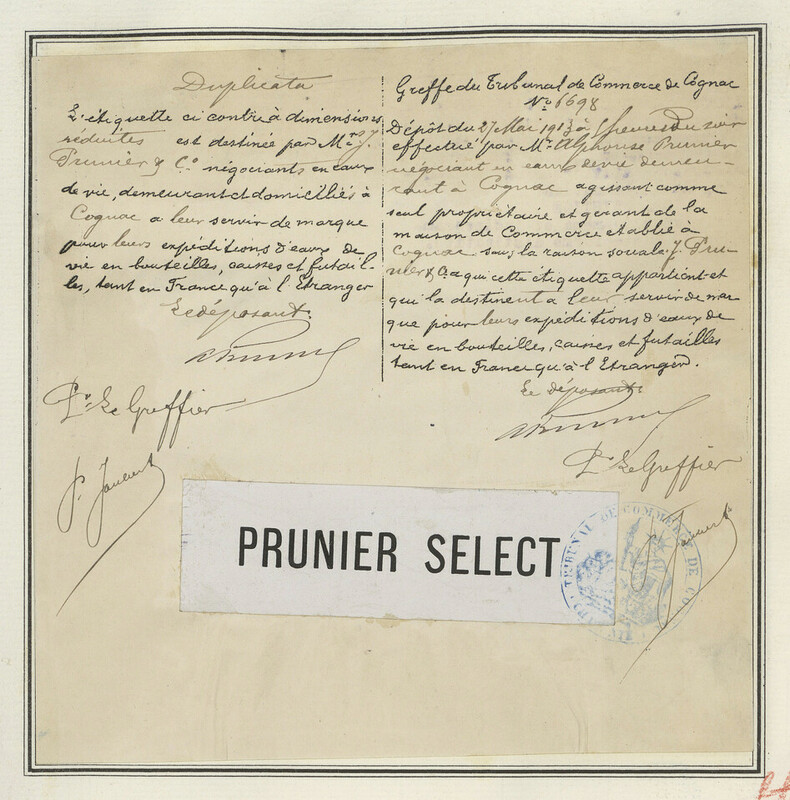 Duplicata
L'étiquette ci contre à dimensions
réduites est destinée par Mr. J.
Prunier & Co. négociants en eaux
de vie, demeurant et domiciliés à
Cognac a leur servir de marque
pour leurs expéditions d'eaux de
vie en bouteilles, caisses et futail-
les, tant en France qu'à l'Etranger
Le déposant.
Pr. Le Greffier
Greffe du Tribunal de Commerce de Cognac
No 6698
Dépôt du 27 Mai 1913 à heures du soir
effectué par Mr. Alphonse Prunier
négociant en eaux de vie demeu-
rant à Cognac agissant comme
seul propriétaire et gérant de la
maison de Commerce etablie à
Cognac sous la raison sociale J. Pru-
nier & Co a qui cette étiquette appartient et
qui la destinent a leur servir de mar-
que pour leurs expéditions d'eaux de
vie en bouteilles, caisses et futailles
tant en France qu'à l'Etranger.
Le déposant.
Pr. Le Greffier
PRUNIER SELECT
TRIBUNAL DE COMMERCE DE